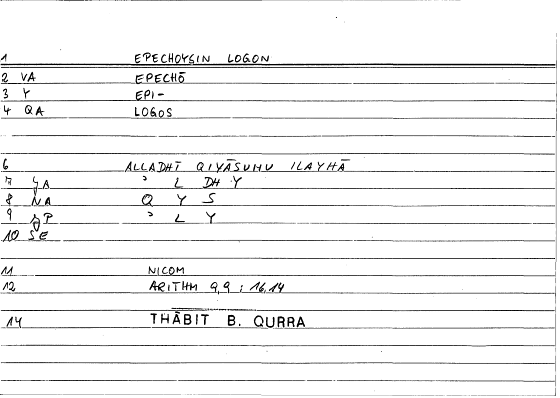 1 EPECHOYSIN LOGON
2 VA EPECHŌ
3 Y EPI-
4 QA LOGOS
6 ALLADHĪ QIYĀSUHU ILAYHĀ
7 ʾ L DH Y
8 NA Q Y S
9 ʾ L Y
10 SE
11 NICOM
12 ARITHM 9,9 ; 16,14
14 THĀBIT B. QURRA